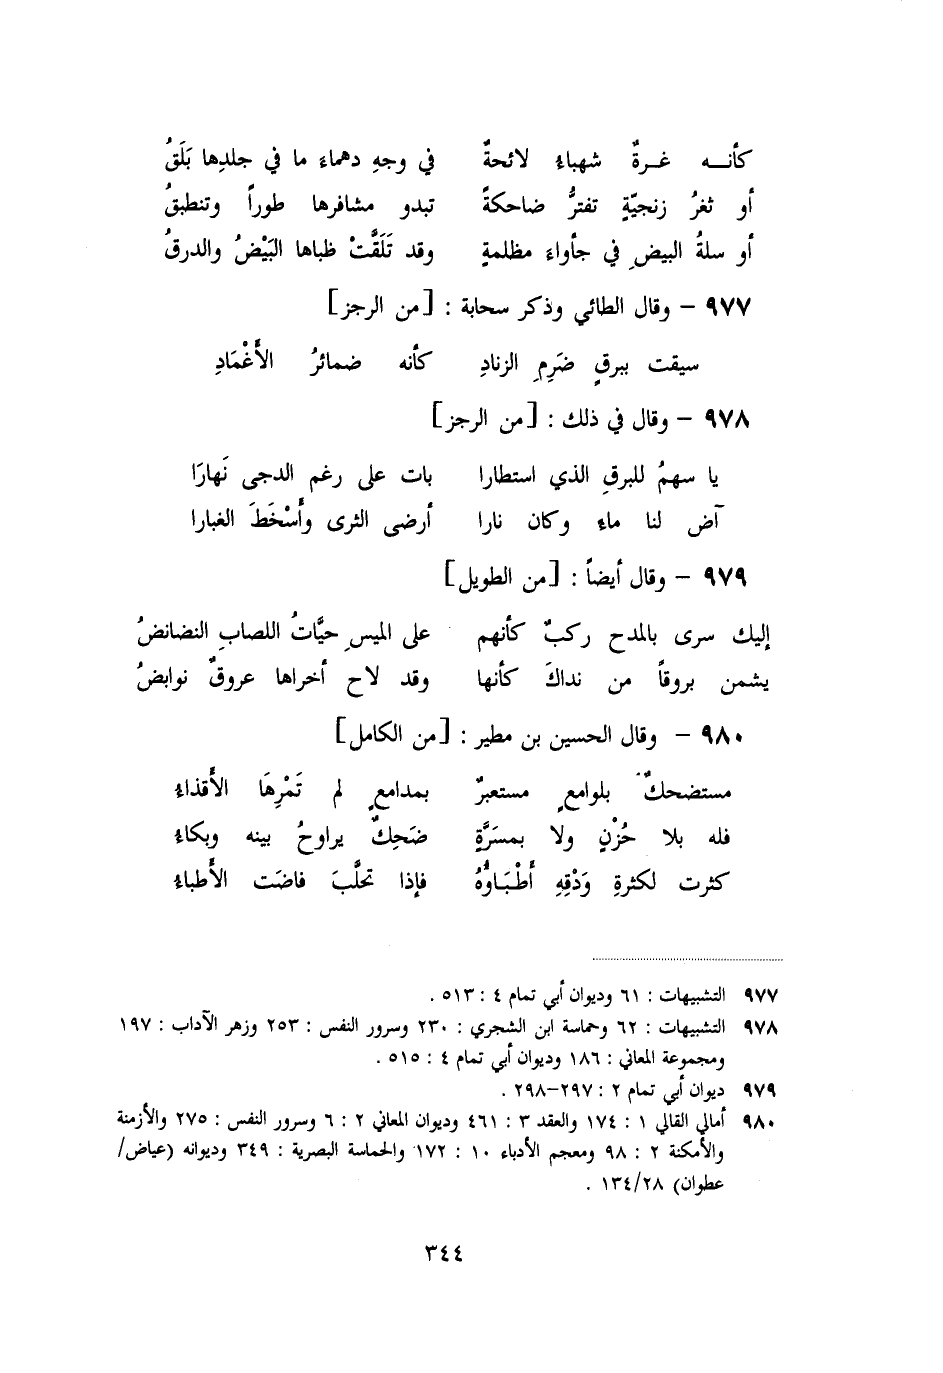 كأنــه غــرةٌ شهباءُ لائحةٌ في وجهِ دهماءَ ما في جلدِها بَلَقُ
أو ثغرُ زنجيّةٍ تفترُّ ضاحكةً تبدو مشافرها طوراً وتنطبقُ
أو سلةُ البيضِ في جأواءَ مظلمةٍ وقد تَلَقَّتْ ظباها البَيْضُ والدرقُ
٩٧٧ – وقال الطائي وذكر سحابة : [من الرجز]
سيقت ببرقٍ ضَرِمِ الزنادِ كأنه ضمائرُ الأَغْمَادِ
٩٧٨ – وقال في ذلك : [من الرجز]
يا سهمُ للبرقِ الذي استطارا بات على رغم الدجى نَهارَا
آض لنا ماءً وكان نارا أرضى الثرى وأَسْخَطَ الغبارا
٩٧٩ – وقال أيضاً : [من الطويل]
إليك سرى بالمدح ركبٌ كأنهم على الميسِ حيَّاتُ اللصابِ النضانضُ
يشمن بروقاً من نداكَ كأنها وقد لاح أخراها عروقٌ نوابضُ
٩٨٠ – وقال الحسين بن مطير : [من الكامل]
مستضحكٌ بلوامعٍ مستعبرٌ بمدامعٍ لم تَمْرِهَا الأقذاءُ
فله بلا حُزْنٍ ولا بمسَرَّةٍ ضَحِكٌ يراوحُ بينه وبكاءُ
كثرت لكثرةِ وَدْقِهِ أَطْبَاؤُهُ فإذا تحلَّبَ فاضَت الأَطباءُ
٩٧٧ التشبيهات : ٦١ وديوان أبي تمام ٤ : ٥١٣ .
٩٧٨ التشبيهات : ٦٢ وحماسة ابن الشجري : ٢٣٠ وسرور النفس : ٢٥٣ وزهر الآداب : ١٩٧
ومجموعة المعاني : ١٨٦ وديوان أبي تمام ٤ : ٥١٥ .
٩٧٩ ديوان أبي تمام ٢ : ٢٩٧–٢٩٨ .
٩٨٠ أمالي القالي ١ : ١٧٤ والعقد ٣ : ٤٦١ وديوان المعاني ٢ : ٦ وسرور النفس : ٢٧٥ والأزمنة
والأمكنة ٢ : ٩٨ ومعجم الأدباء ١٠ : ١٧٢ والحماسة البصرية : ٣٤٩ وديوانه (عياض/
عطوان) ١٣٤/٢٨ .
٣٤٤